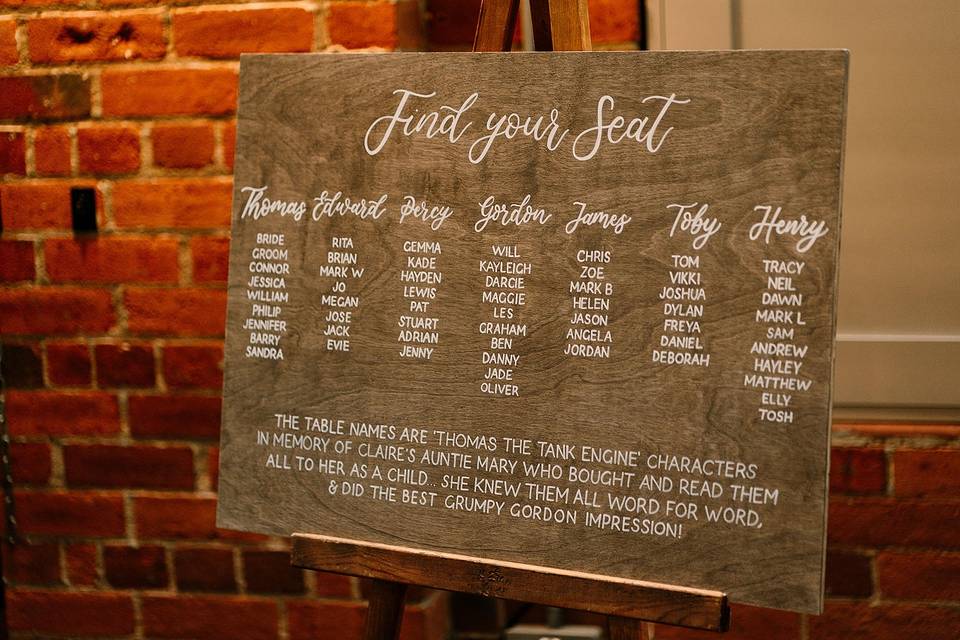 Find your Seat
Thomas
BRIDE
GROOM
CONNOR
JESSICA
WILLIAM
PHILIP
JENNIFER
BARRY
SANDRA
Edward
RITA
BRIAN
MARK W
JO
MEGAN
JOSE
JACK
EVIE
Percy
GEMMA
KADE
HAYDEN
LEWIS
PAT
STUART
ADRIAN
JENNY
Gordon
WILL
KAYLEIGH
DARCIE
MAGGIE
LES
GRAHAM
BEN
DANNY
JADE
OLIVER
James
CHRIS
ZOE
MARK B
HELEN
JASON
ANGELA
JORDAN
Toby
TOM
VIKKI
JOSHUA
DYLAN
FREYA
DANIEL
DEBORAH
Henry
TRACY
NEIL
DAWN
MARK L
SAM
ANDREW
HAYLEY
MATTHEW
ELLY
TOSH
THE TABLE NAMES ARE 'THOMAS THE TANK ENGINE' CHARACTERS
IN MEMORY OF CLAIRE'S AUNTIE MARY WHO BOUGHT AND READ THEM
ALL TO HER AS A CHILD... SHE KNEW THEM ALL WORD FOR WORD,
& DID THE BEST GRUMPY GORDON IMPRESSION!